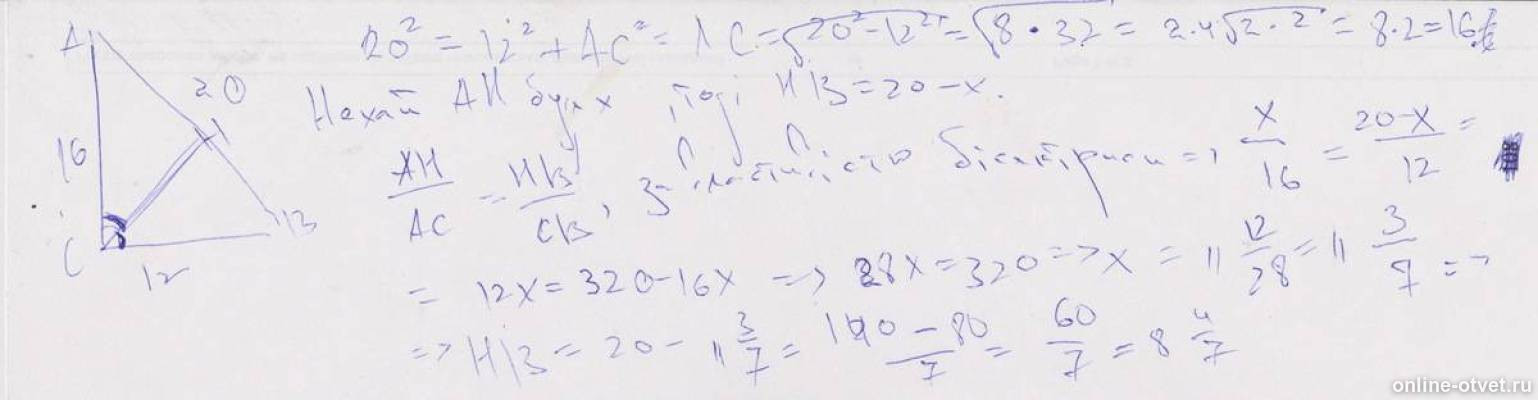 20² = 12² + AC² = AC = √20² - 12² = √8 · 32 = 2·4√2·2 = 8·2 = 16
A
20
Нехай AH буде x, тоді HB = 20 - x.
H
16
AH/AC = HB/CB, за властивістю бісектриси => x/16 = 20-x/12 =
B
C
12
= 12x = 320 - 16x => 28x = 320 => x = 11 12/28 = 11 3/7 =>
=> HB = 20 - 11 3/7 = 140 - 80/7 = 60/7 = 8 4/7
online-otvet.ru